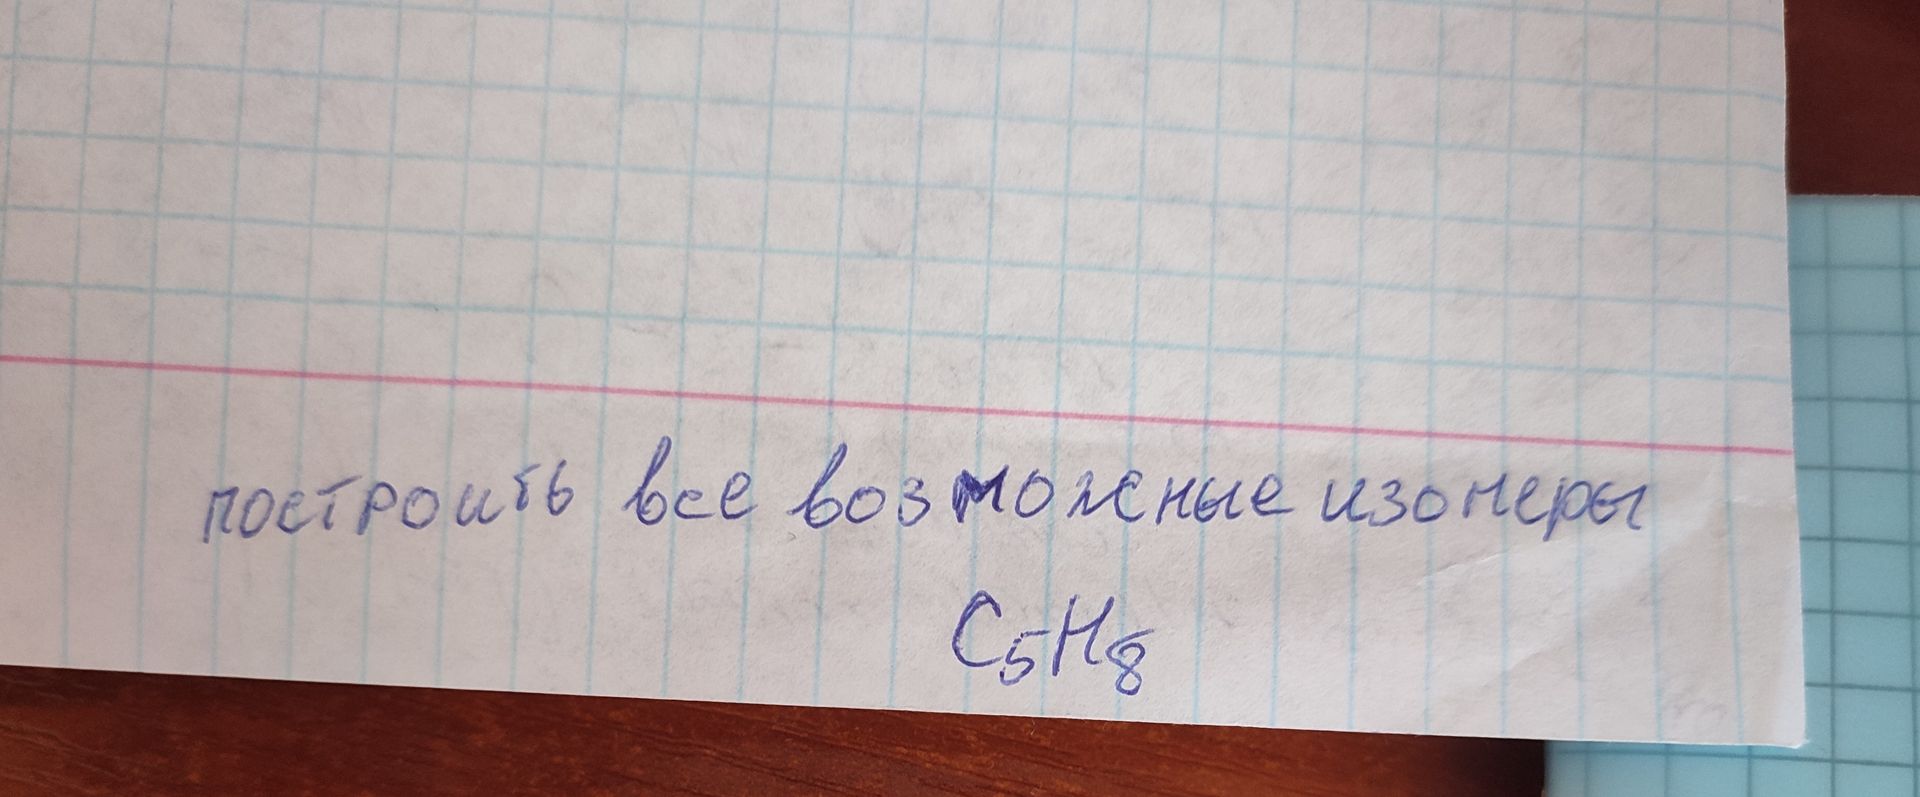 построить все возможные изомеры
C₅H₈